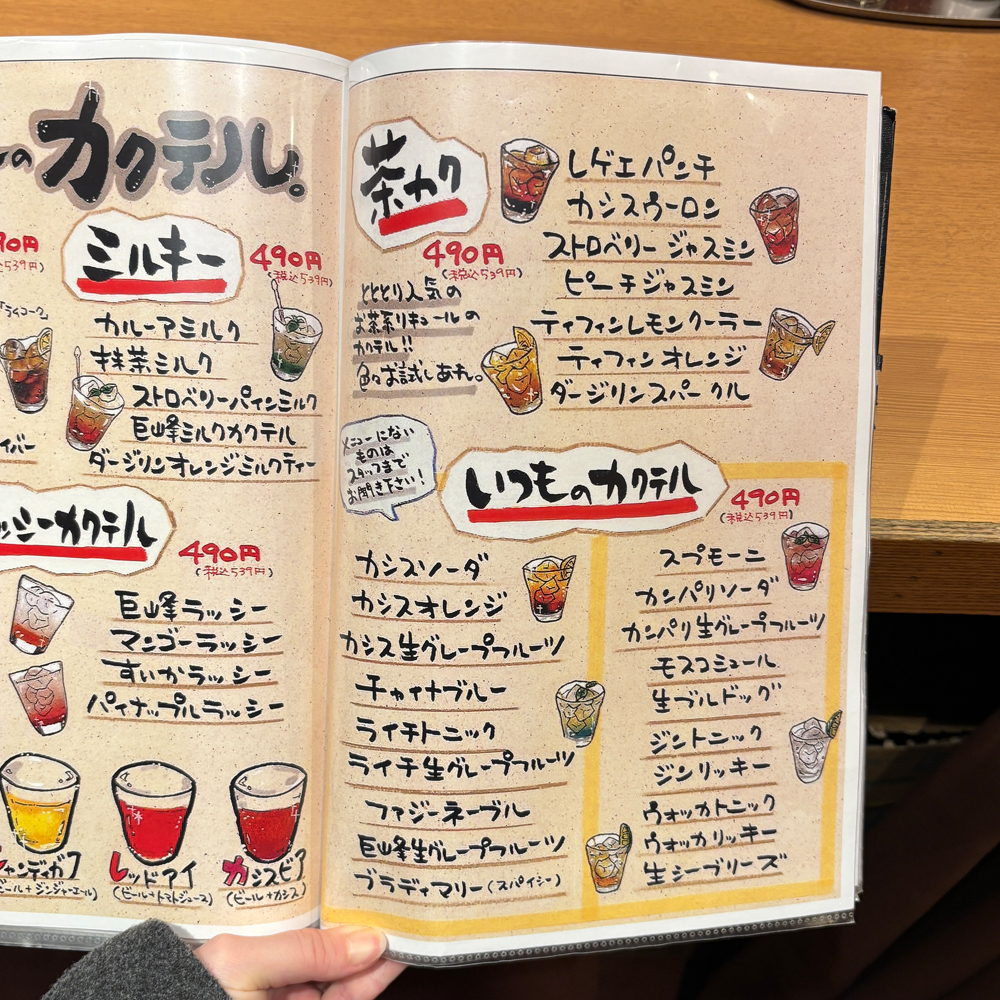 のカクテル。
90円
込539円)
ミルキー
490円
(税込539円)
カルーアミルク
抹茶ミルク
ストロベリーパインミルク
巨峰ミルクカクテル
ダージリンオレンジミルクティー
イバー
ッシーカクテル
490円
(税込539円)
巨峰ラッシー
マンゴーラッシー
すいかラッシー
パイナップルラッシー
シャンディガフ
ビール+ジンジャーエール)
レッドアイ
(ビール+トマトジュース)
カシスビア
(ビール+カシス)
茶カク
490円
(税込539円)
とととり人気の
お茶系リキュールの
カクテル!!
色々お試しあれ。
レゲエパンチ
カシスウーロン
ストロベリージャスミン
ピーチジャスミン
ティフィンレモンクーラー
ティフィンオレンジ
ダージリンスパークル
メニューにない
ものは
スタッフまで
お聞き下さい!
いつものカクテル
490円
(税込539円)
カシスソーダ
カシスオレンジ
カシス生グレープフルーツ
チャイナブルー
ライチトニック
ライチ生グレープフルーツ
ファジーネーブル
巨峰生グレープフルーツ
ブラディマリー(スパイシー)
スプモーニ
カンパリソーダ
カンパリ生グレープフルーツ
モスコミュール
生ブルドッグ
ジントニック
ジンリッキー
ウォッカトニック
ウォッカリッキー
生シーブリーズ